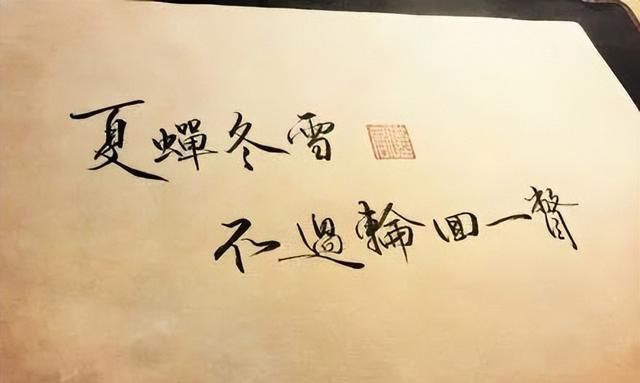 夏蟬冬雪
不過輪回一瞥